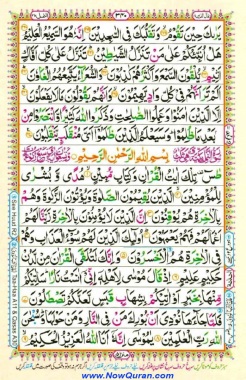 يَرٰىكَ حِيْنَ تَقُوْمُ وَتَقَلُّبَكَ فِي السّٰجِدِيْنَ اِنَّهٗ هُوَ السَّمِيْعُ الْعَلِيْمُ
هَلْ اُنَبِّئُكُمْ عَلٰى مَنْ تَنَزَّلُ الشَّيٰطِيْنُ تَنَزَّلُ عَلٰى كُلِّ اَفَّاكٍ
اَثِيْمٍ يُّلْقُوْنَ السَّمْعَ وَاَكْثَرُهُمْ كٰذِبُوْنَ وَالشُّعَرَآءُ يَتَّبِعُهُمُ الْغَاوٗنَ
اَلَمْ تَرَ اَنَّهُمْ فِيْ كُلِّ وَادٍ يَّهِيْمُوْنَ وَاَنَّهُمْ يَقُوْلُوْنَ مَا لَا يَفْعَلُوْنَ
اِلَّا الَّذِيْنَ اٰمَنُوْا وَعَمِلُوا الصّٰلِحٰتِ وَذَكَرُوا اللّٰهَ كَثِيْرًا وَّانْتَصَرُوْا مِنْ
بَعْدِ مَا ظُلِمُوْا وَسَيَعْلَمُ الَّذِيْنَ ظَلَمُوْٓا اَيَّ مُنْقَلَبٍ يَّنْقَلِبُوْنَ
بِسْمِ اللّٰهِ الرَّحْمٰنِ الرَّحِيْمِ
طٰسٓ تِلْكَ اٰيٰتُ الْقُرْاٰنِ وَكِتَابٍ مُّبِيْنٍ هُدًى وَّبُشْرٰى
لِلْمُؤْمِنِيْنَ الَّذِيْنَ يُقِيْمُوْنَ الصَّلٰوةَ وَيُؤْتُوْنَ الزَّكٰوةَ وَهُمْ
بِالْاٰخِرَةِ هُمْ يُوْقِنُوْنَ اِنَّ الَّذِيْنَ لَا يُؤْمِنُوْنَ بِالْاٰخِرَةِ زَيَّنَّا لَهُمْ
اَعْمَالَهُمْ فَهُمْ يَعْمَهُوْنَ اُولٰٓئِكَ الَّذِيْنَ لَهُمْ سُوْٓءُ الْعَذَابِ وَهُمْ
فِي الْاٰخِرَةِ هُمُ الْاَخْسَرُوْنَ وَاِنَّكَ لَتُلَقَّى الْقُرْاٰنَ مِنْ لَّدُنْ
حَكِيْمٍ عَلِيْمٍ اِذْ قَالَ مُوْسٰى لِاَهْلِهٖٓ اِنِّيْٓ اٰنَسْتُ نَارًا سَاٰتِيْكُمْ
مِّنْهَا بِخَبَرٍ اَوْ اٰتِيْكُمْ بِشِهَابٍ قَبَسٍ لَّعَلَّكُمْ تَصْطَلُوْنَ
فَلَمَّا جَآءَهَا نُوْدِيَ اَنْۢ بُوْرِكَ مَنْ فِي النَّارِ وَمَنْ حَوْلَهَا وَسُبْحٰنَ
اللّٰهِ رَبِّ الْعٰلَمِيْنَ يٰمُوْسٰٓى اِنَّهٗٓ اَنَا اللّٰهُ الْعَزِيْزُ الْحَكِيْمُ
www.NowQuran.com